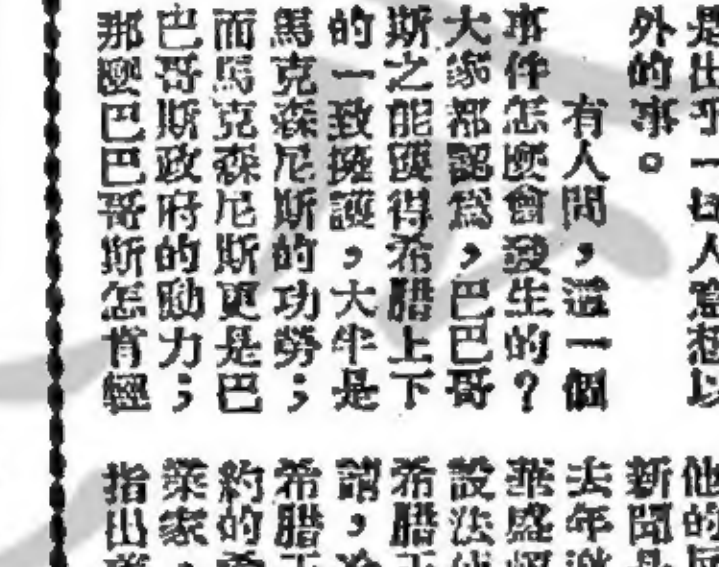 是出乎一切人意想以
外的事。
有人問，這一個
事件怎麼會發生的？
大家都認爲，巴巴哥
斯之能獲得希腊上下
的一致擁護，大半是
馬克森尼斯的功勞；
而馬克森尼斯更是巴
巴哥斯政府的動力；
那麼巴巴哥斯怎肯輕
他的
新聞
去年
華盛
設法
希腊
謂，
希腊
約的
萊家
指出